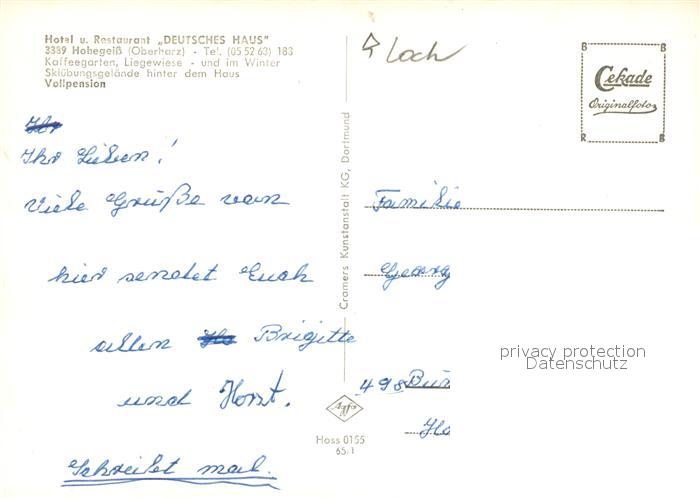 Hotel u. Restaurant „DEUTSCHES HAUS"
3389 Hohegeiß (Oberharz) - Tel. (05 52 63) 183
Kaffeegarten, Liegewiese - und im Winter
Skiübungsgelände hinter dem Haus
Vollpension
Ihr Lieben!
Viele Grüße von
hier sendet Euch
allen Brigitte
und Horst.
Schreibt mal.
Cramers Kunstanstalt KG, Dortmund
Agfa
Hoss 0155
65/1
Loch
B B
Cekade
Originalfoto
R B
Familie
Georg
498 Bün
Ho
privacy protection
Datenschutz